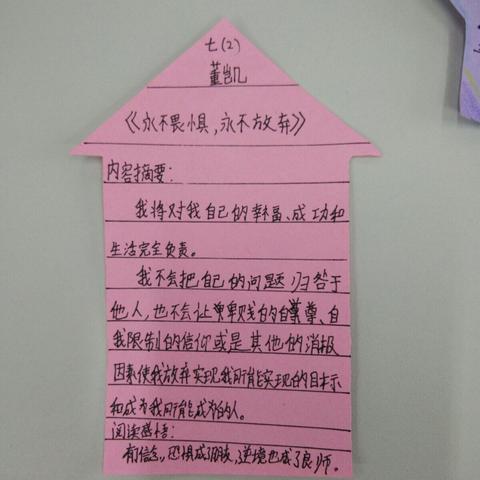 七(2)
董凯
《永不畏惧，永不放弃》
内容摘要：
我将对我自己的幸福、成功和
生活完全负责。
我不会把自己的问题归咎于
他人，也不会让卑贱的自尊、自
我限制的信仰或是其他的消极
因素使我放弃实现我所能实现的目标
和成为我所能成为的人。
阅读感悟：
有信念，恐惧成了朋友，逆境也成了良师。